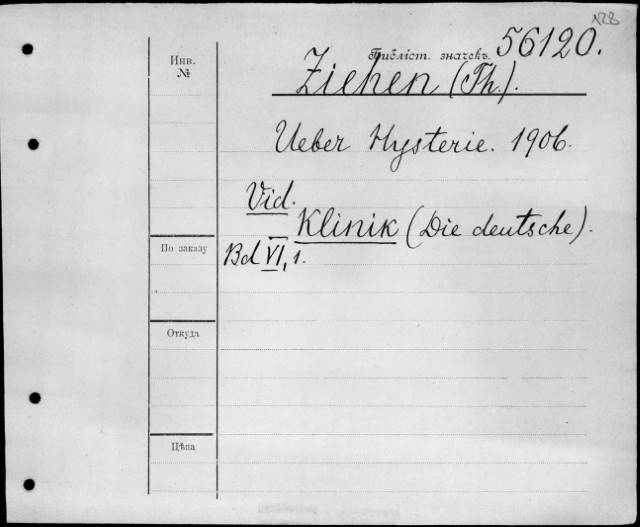 128
Инв.
№
Библіот. значекъ. 56120.
Ziehen (Th.).
Ueber Hysterie. 1906.
Vid.
Klinik (Die deutsche).
Bd VI, 1.
По заказу
Откуда
Цѣна